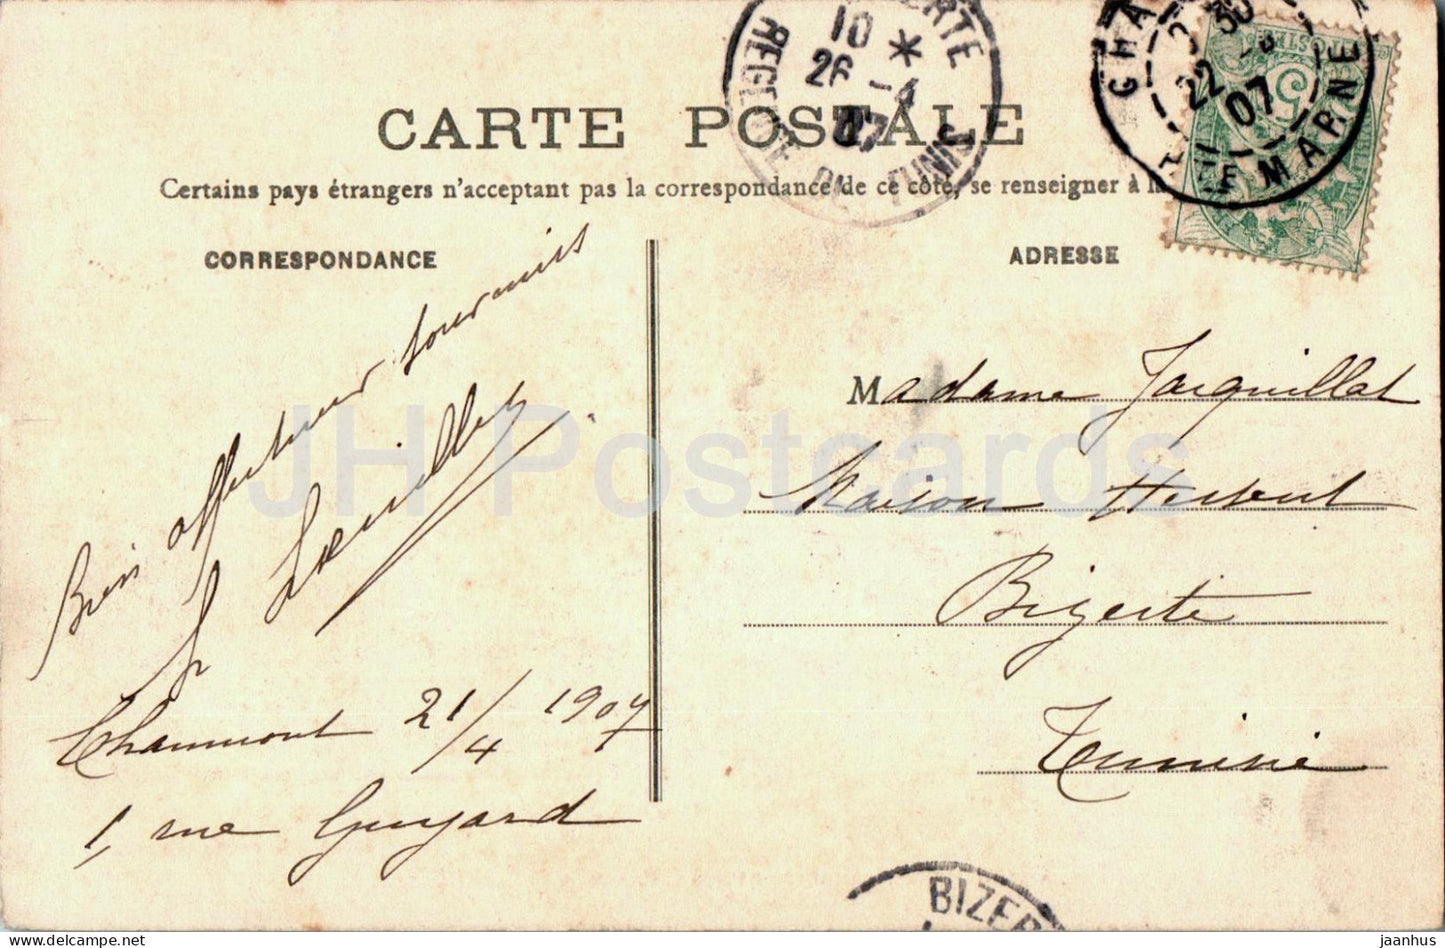 BIZERTE
10
26 -4
07
REGENCE DE TUNIS
CHA
22
07
HTE MARNE
CARTE POSTALE
Certains pays étrangers n'acceptant pas la correspondance de ce côté, se renseigner à la
CORRESPONDANCE
ADRESSE
Bien affectueux souvenirs
Chaumont 21/4 1907
1, rue Guyard
Madame Jacquillat
Maison
Bizerte
Tunisie
BIZER
JH Postcards
jaanhus - delcampe.net